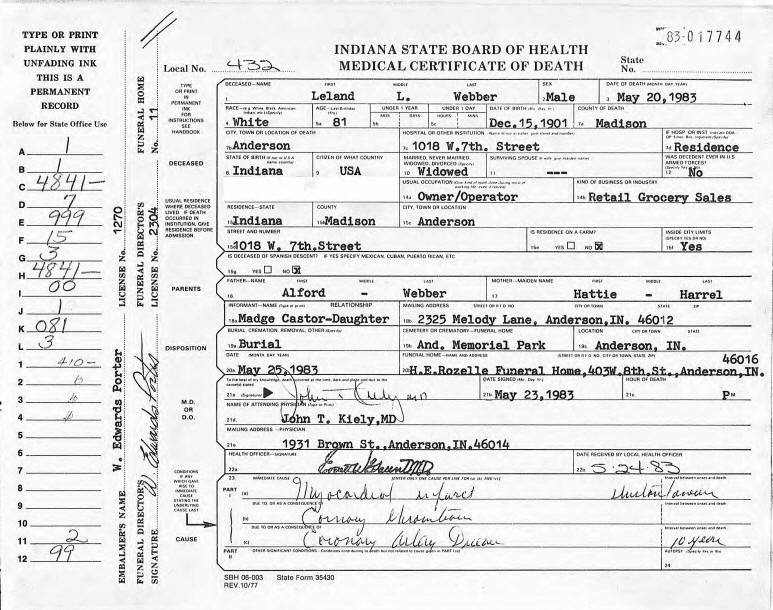 83-017744
TYPE OR PRINT PLAINLY WITH UNFADING INK THIS IS A PERMANENT RECORD
INDIANA STATE BOARD OF HEALTH
MEDICAL CERTIFICATE OF DEATH
Local No. 432
State No.
Below for State Office Use
A 1
B 1
C 4841-
D 7
E 999
F 15
G 3
H 4841-
I 00
J 1
K 081
L 3
1 410-
2
3
4
5
6
7
8
9
10
11 2
12 99
EMBALMER'S NAME W. Edwards Porter LICENSE No. 1270
FUNERAL DIRECTOR'S SIGNATURE
FUNERAL DIRECTOR'S LICENSE No. 2304
FUNERAL HOME No. 11
TYPE OR PRINT IN PERMANENT INK FOR INSTRUCTIONS SEE HANDBOOK
DECEASED—NAME FIRST MIDDLE LAST SEX DATE OF DEATH (MONTH DAY YEAR)
1. Leland L. Webber 2 Male 3 May 20,1983
RACE AGE—Last Birthday UNDER 1 YEAR UNDER 1 DAY DATE OF BIRTH COUNTY OF DEATH
4 White 5a 81 5b MOS DAYS 5c HOURS MINS 6 Dec.15,1901 7a Madison
CITY, TOWN OR LOCATION OF DEATH HOSPITAL OR OTHER INSTITUTION
7b Anderson 7c 1018 W.7th. Street 7d Residence
DECEASED
STATE OF BIRTH CITIZEN OF WHAT COUNTRY MARRIED, NEVER MARRIED, WIDOWED, DIVORCED (Specify) SURVIVING SPOUSE WAS DECEDENT EVER IN U.S ARMED FORCES?
8 Indiana 9 USA 10 Widowed 11 --- 12 No
USUAL RESIDENCE WHERE DECEASED LIVED. IF DEATH OCCURRED IN INSTITUTION, GIVE RESIDENCE BEFORE ADMISSION.
USUAL OCCUPATION KIND OF BUSINESS OR INDUSTRY
14a Owner/Operator 14b Retail Grocery Sales
RESIDENCE—STATE COUNTY CITY, TOWN OR LOCATION
15a Indiana 15b Madison 15c Anderson
STREET AND NUMBER IS RESIDENCE ON A FARM? INSIDE CITY LIMITS (SPECIFY YES OR NO)
15d 1018 W. 7th.Street 15e YES NO X 15f Yes
IS DECEASED OF SPANISH DESCENT? IF YES SPECIFY MEXICAN, CUBAN, PUERTO RICAN, ETC
15g YES NO X
PARENTS
FATHER—NAME FIRST MIDDLE LAST MOTHER—MAIDEN NAME FIRST MIDDLE LAST
16 Alford - Webber 17 Hattie - Harrel
INFORMANT—NAME (Type or print) RELATIONSHIP MAILING ADDRESS STREET OR R F D NO CITY OR TOWN STATE ZIP
18a Madge Castor-Daughter 18b 2325 Melody Lane, Anderson,IN. 46012
DISPOSITION
BURIAL, CREMATION, REMOVAL, OTHER (Specify) CEMETERY OR CREMATORY—FUNERAL HOME LOCATION CITY OR TOWN STATE
19a Burial 19b And. Memorial Park 19c Anderson, IN.
DATE (MONTH DAY YEAR) FUNERAL HOME—NAME AND ADDRESS (STREET OR R F D NO. CITY OR TOWN, STATE ZIP) 46016
20a May 25,1983 20b H.E.Rozelle Funeral Home,403W.8th.St.,Anderson,IN.
M.D. OR D.O.
To the best of my knowledge, death occurred at the time, date and place and due to the cause(s) stated
DATE SIGNED (Mo. Day, Yr.) HOUR OF DEATH
21a (Signature) 21b May 23,1983 21c P M
NAME OF ATTENDING PHYSICIAN (Type or Print)
21d. John T. Kiely,MD
MAILING ADDRESS—PHYSICIAN
21e. 1931 Brown St.,Anderson,IN.46014
HEALTH OFFICER—SIGNATURE DATE RECEIVED BY LOCAL HEALTH OFFICER
22a 22b 5-24-83
CONDITIONS IF ANY WHICH GAVE RISE TO IMMEDIATE CAUSE STATING THE UNDERLYING CAUSE LAST
CAUSE
23. IMMEDIATE CAUSE (ENTER ONLY ONE CAUSE PER LINE FOR (a) (b) AND (c)) Interval between onset and death
PART I (a) Myocardial infarct
DUE TO, OR AS A CONSEQUENCE OF Interval between onset and death
(b) Coronary thrombosis
DUE TO OR AS A CONSEQUENCE OF Interval between onset and death
(c) Coronary Artery Disease 10 years
PART II OTHER SIGNIFICANT CONDITIONS AUTOPSY
24
SBH 06-003 State Form 35430
REV.10/77